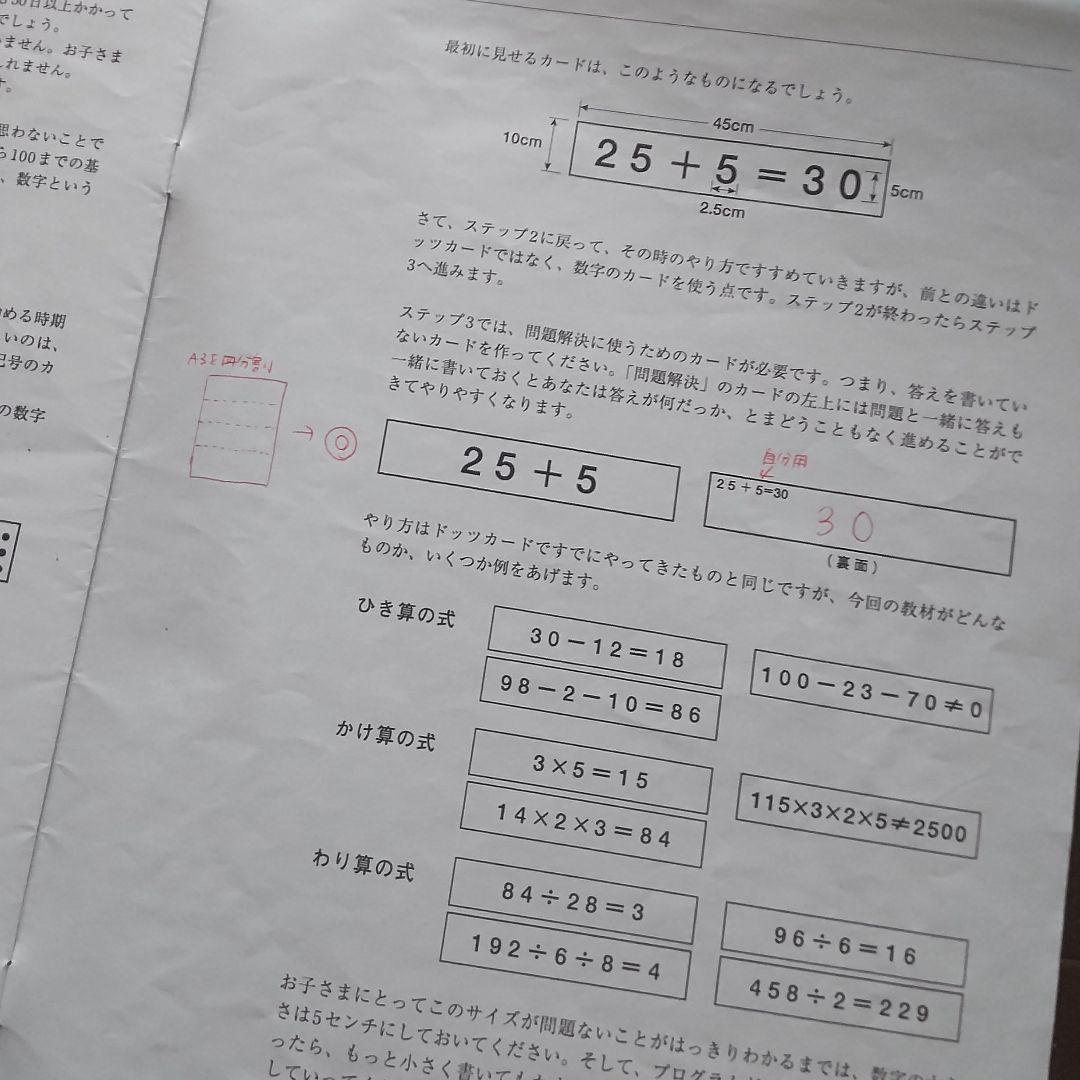 30日以上かかって
でしょう。
ません。お子さま
しれません。
す。
思わないことで
ら100までの基
、数字という
める時期
いのは、
記号のカ
の数字
最初に見せるカードは、このようなものになるでしょう。
45cm
10cm
25＋5＝30
5cm
2.5cm
さて、ステップ2に戻って、その時のやり方ですすめていきますが、前との違いはド
ッツカードではなく、数字のカードを使う点です。ステップ2が終わったらステップ
3へ進みます。
ステップ3では、問題解決に使うためのカードが必要です。つまり、答えを書いてい
ないカードを作ってください。「問題解決」のカードの左上には問題と一緒に答えも
一緒に書いておくとあなたは答えが何だっか、とまどうこともなく進めることがで
きてやりやすくなります。
A3を四分割り
→ ◎
25＋5
自分用
25＋5=30
30
（裏面）
やり方はドッツカードですでにやってきたものと同じですが、今回の教材がどんな
ものか、いくつか例をあげます。
ひき算の式
30－12＝18
98－2－10＝86
100－23－70≠0
かけ算の式
3×5＝15
14×2×3＝84
115×3×2×5≠2500
わり算の式
84÷28＝3
192÷6÷8＝4
96÷6＝16
458÷2＝229
お子さまにとってこのサイズが問題ないことがはっきりわかるまでは、数字の
さは5センチにしておいてください。そして、プログラ
ったら、もっと小さく書いても
していって